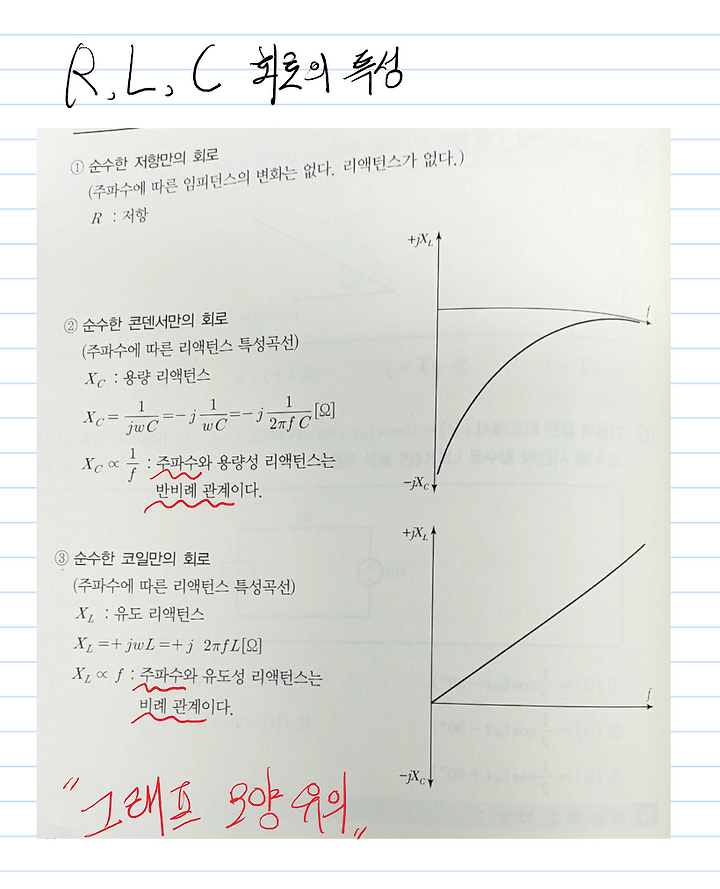 R, L, C 회로의 특성
① 순수한 저항만의 회로
(주파수에 따른 임피던스의 변화는 없다. 리액턴스가 없다.)
R : 저항
② 순수한 콘덴서만의 회로
(주파수에 따른 리액턴스 특성곡선)
X_C : 용량 리액턴스
X_C = 1/(jwC) = -j 1/(wC) = -j 1/(2πfC) [Ω]
X_C ∝ 1/f : 주파수와 용량성 리액턴스는
반비례 관계이다.
+jX_L
f
-jX_C
③ 순수한 코일만의 회로
(주파수에 따른 리액턴스 특성곡선)
X_L : 유도 리액턴스
X_L = +jwL = +j 2πfL[Ω]
X_L ∝ f : 주파수와 유도성 리액턴스는
비례 관계이다.
+jX_L
f
-jX_C
"그래프 모양 유의"